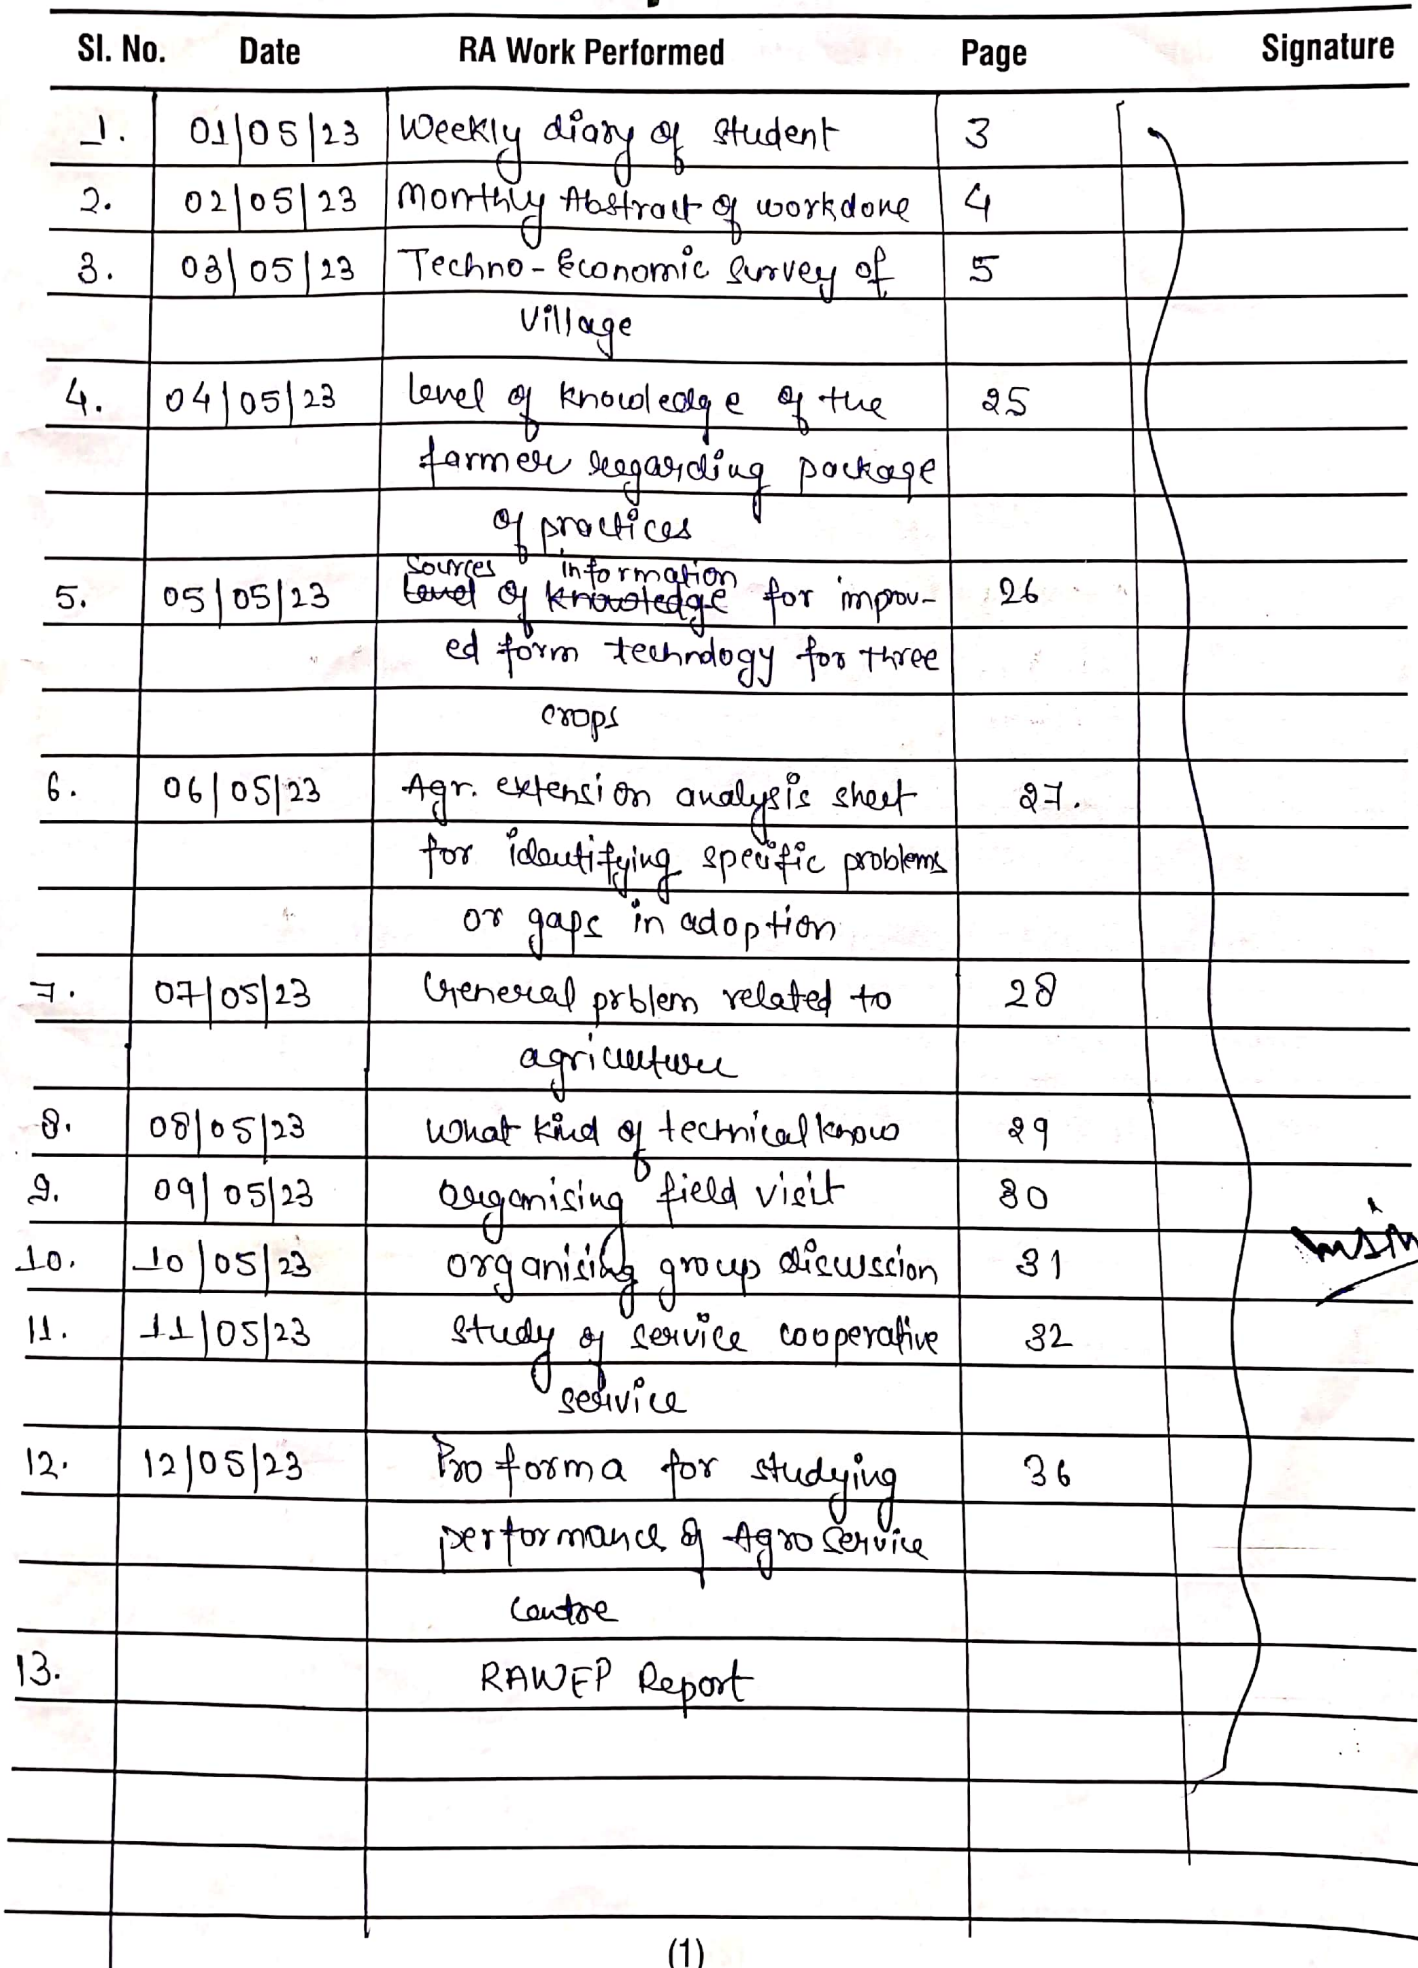 Sl. No. Date RA Work Performed Page Signature
1. 01/05/23 Weekly diary of student 3
2. 02/05/23 Monthly Abstract of workdone 4
3. 03/05/23 Techno-Economic Survey of 5
Village
4. 04/05/23 Level of knowledge of the 25
farmer regarding package
of practices
Sources information
5. 05/05/23 Level of knowledge for improv- 26
ed form technology for three
crops
6. 06/05/23 Agr. extension analysis sheet 27.
for identifying specific problems
or gaps in adoption
7. 07/05/23 General prblem related to 28
agriculture
8. 08/05/23 What kind of technical know 29
9. 09/05/23 Organising field visit 30
10. 10/05/23 organising group discussion 31
11. 11/05/23 Study of service cooperative 32
service
12. 12/05/23 Pro forma for studying 36
performance of Agro Service
Centre
13. RAWEP Report
(1)